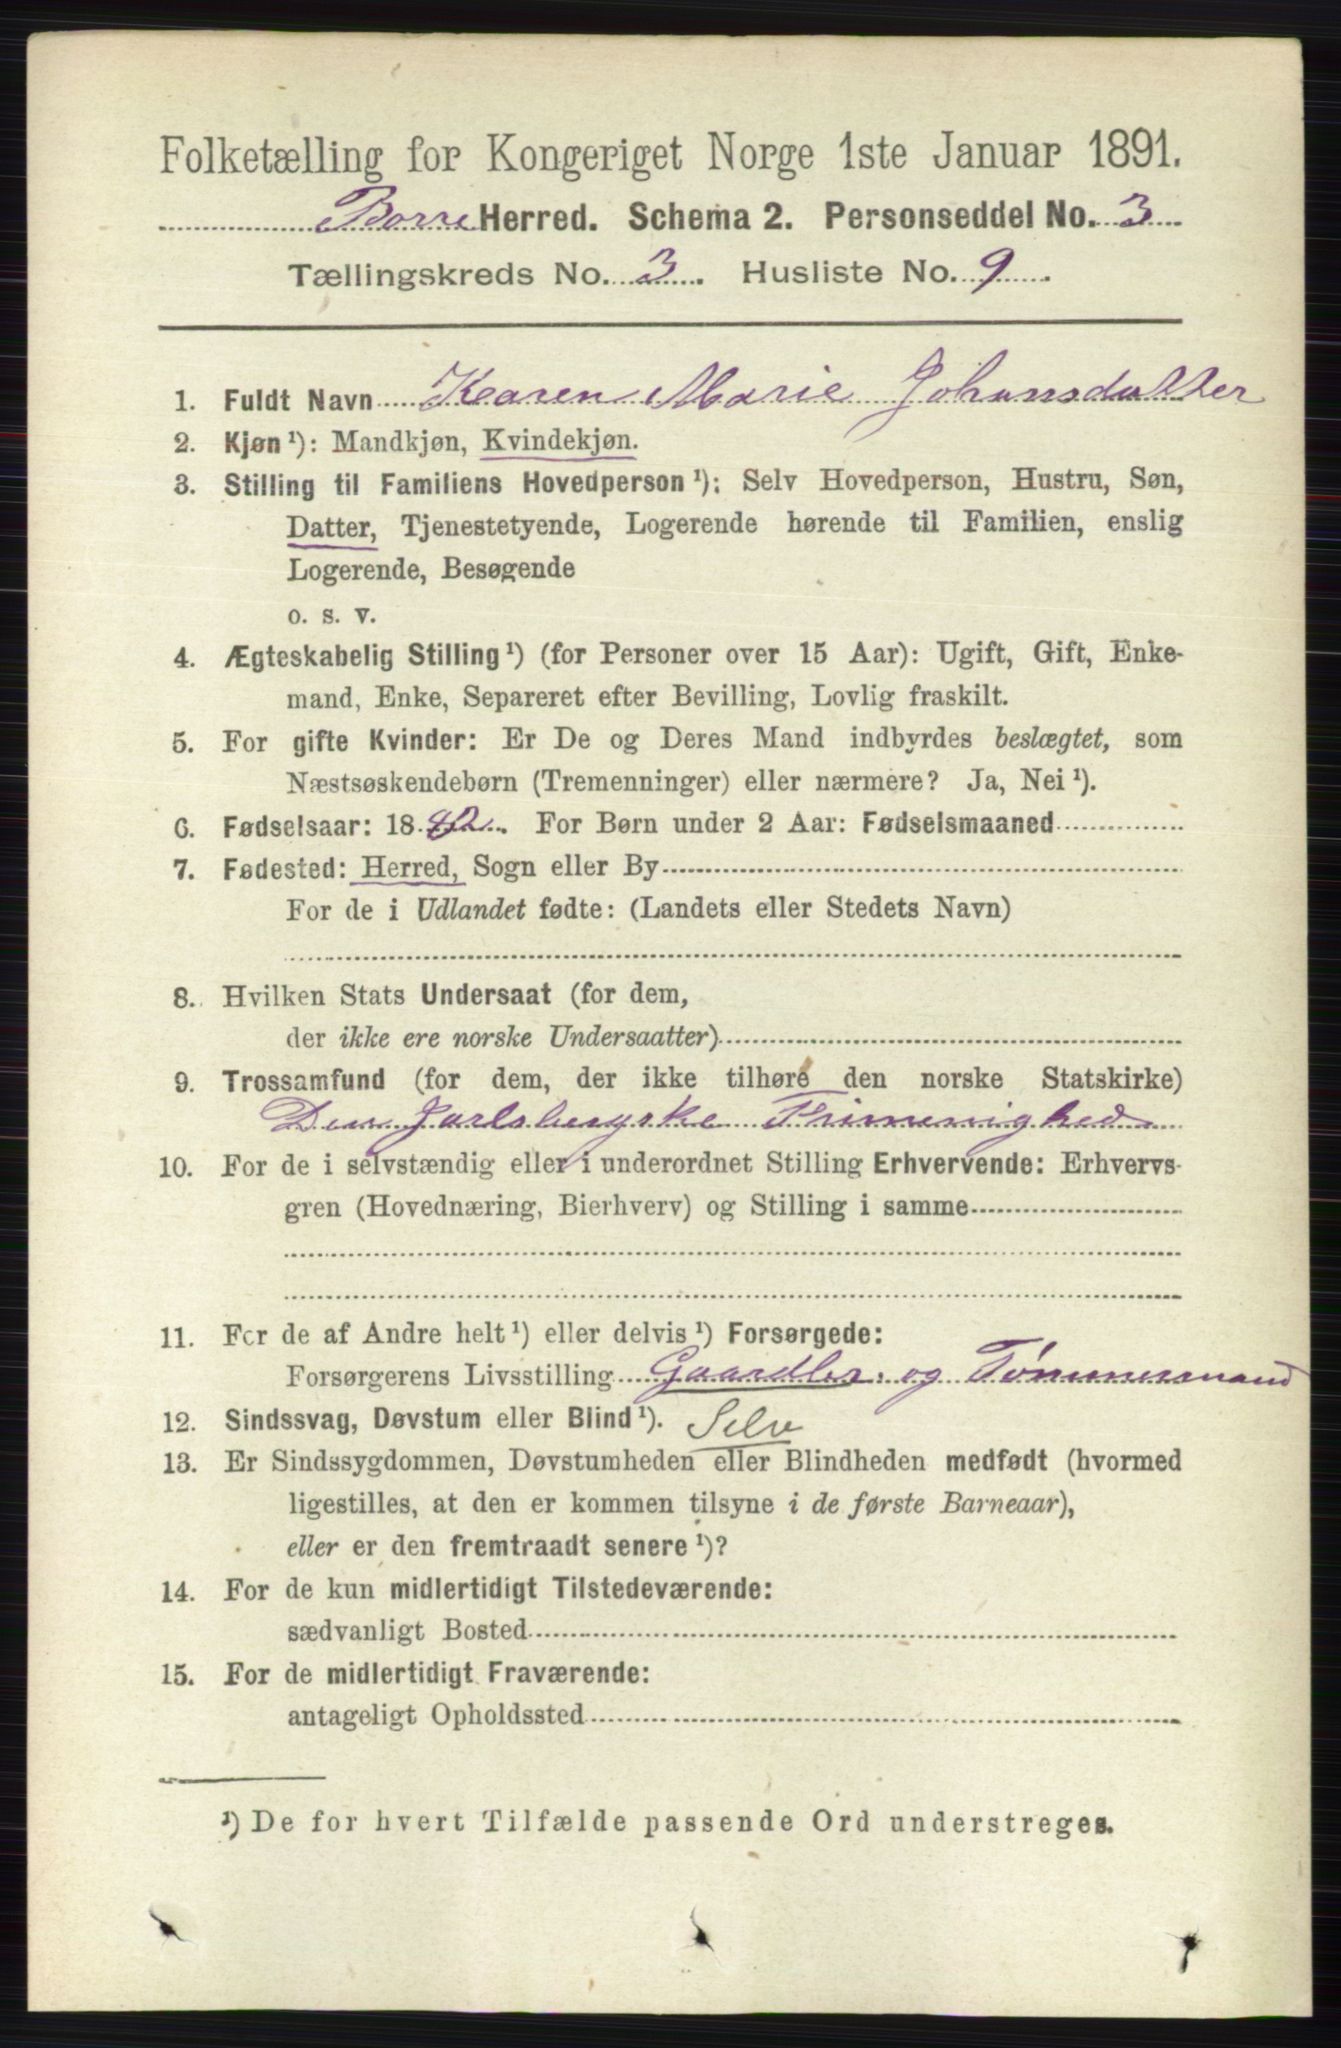 Folketælling for Kongeriget Norge 1ste Januar 1891.
Borre Herred. Schema 2. Personseddel No. 3
Tællingskreds No. 3. Husliste No. 9.
1. Fuldt Navn Karen Marie Johansdatter
2. Kjøn ¹): Mandkjøn, Kvindekjøn.
3. Stilling til Familiens Hovedperson ¹): Selv Hovedperson, Hustru, Søn,
Datter, Tjenestetyende, Logerende hørende til Familien, enslig
Logerende, Besøgende
o. s. v.
4. Ægteskabelig Stilling ¹) (for Personer over 15 Aar): Ugift, Gift, Enke-
mand, Enke, Separeret efter Bevilling, Lovlig fraskilt.
5. For gifte Kvinder: Er De og Deres Mand indbyrdes beslægtet, som
Næstsøskendebørn (Tremenninger) eller nærmere? Ja, Nei ¹).
6. Fødselsaar: 1882. For Børn under 2 Aar: Fødselsmaaned
7. Fødested: Herred, Sogn eller By
For de i Udlandet fødte: (Landets eller Stedets Navn)
8. Hvilken Stats Undersaat (for dem,
der ikke ere norske Undersaatter)
9. Trossamfund (for dem, der ikke tilhøre den norske Statskirke)
Den Jarlsbergske Frimenighed
10. For de i selvstændig eller i underordnet Stilling Erhvervende: Erhvervs-
gren (Hovednæring, Bierhverv) og Stilling i samme
11. For de af Andre helt ¹) eller delvis ¹) Forsørgede:
Forsørgerens Livsstilling Gaardbr. og Tømmermand
12. Sindssvag, Døvstum eller Blind ¹). Selv
13. Er Sindssygdommen, Døvstumheden eller Blindheden medfødt (hvormed
ligestilles, at den er kommen tilsyne i de første Barneaar),
eller er den fremtraadt senere ¹)?
14. For de kun midlertidigt Tilstedeværende:
sædvanligt Bosted
15. For de midlertidigt Fraværende:
antageligt Opholdssted
¹) De for hvert Tilfælde passende Ord understreges.